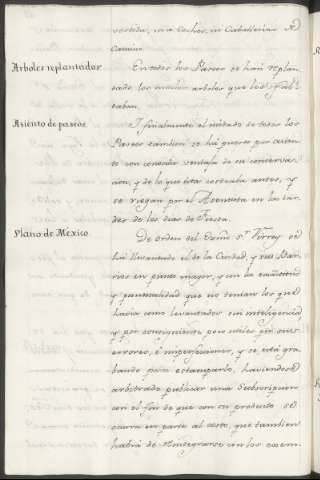 vestida, ni a Coches, ni Caballerias de
Camino.
Arboles replantados
En todos los Paseos se han replan-
tado los muchos arboles que les fal-
taban.
Asiento de paseos.
Y finalmente el cuidado de todos los
Paseos tambien se há puesto por asien-
to con conocidas ventajas de su conserva-
cion, y de lo que esta costeaba antes, y
se riegan por el Asentista en las tar-
des de los dias de Fiesta.
Plano de Mexico.
De orden del Exmô S.r Virrey se
há levantado el de la Ciudad, y sus Bar-
rios en punto mayor, y con la exâctitud
y puntualidad que no tenian los que
havia como levantados sin inteligencia
y por consiguiente poco utiles por sus
errores, é imperfecciones, y se está gra-
bando para estamparlo, haviendose
arbitrado publicar una Subscripcion
con el fin de que con su producto se
ocurra en parte al costo, que tambien
habrá de reintegrarse con los exem-